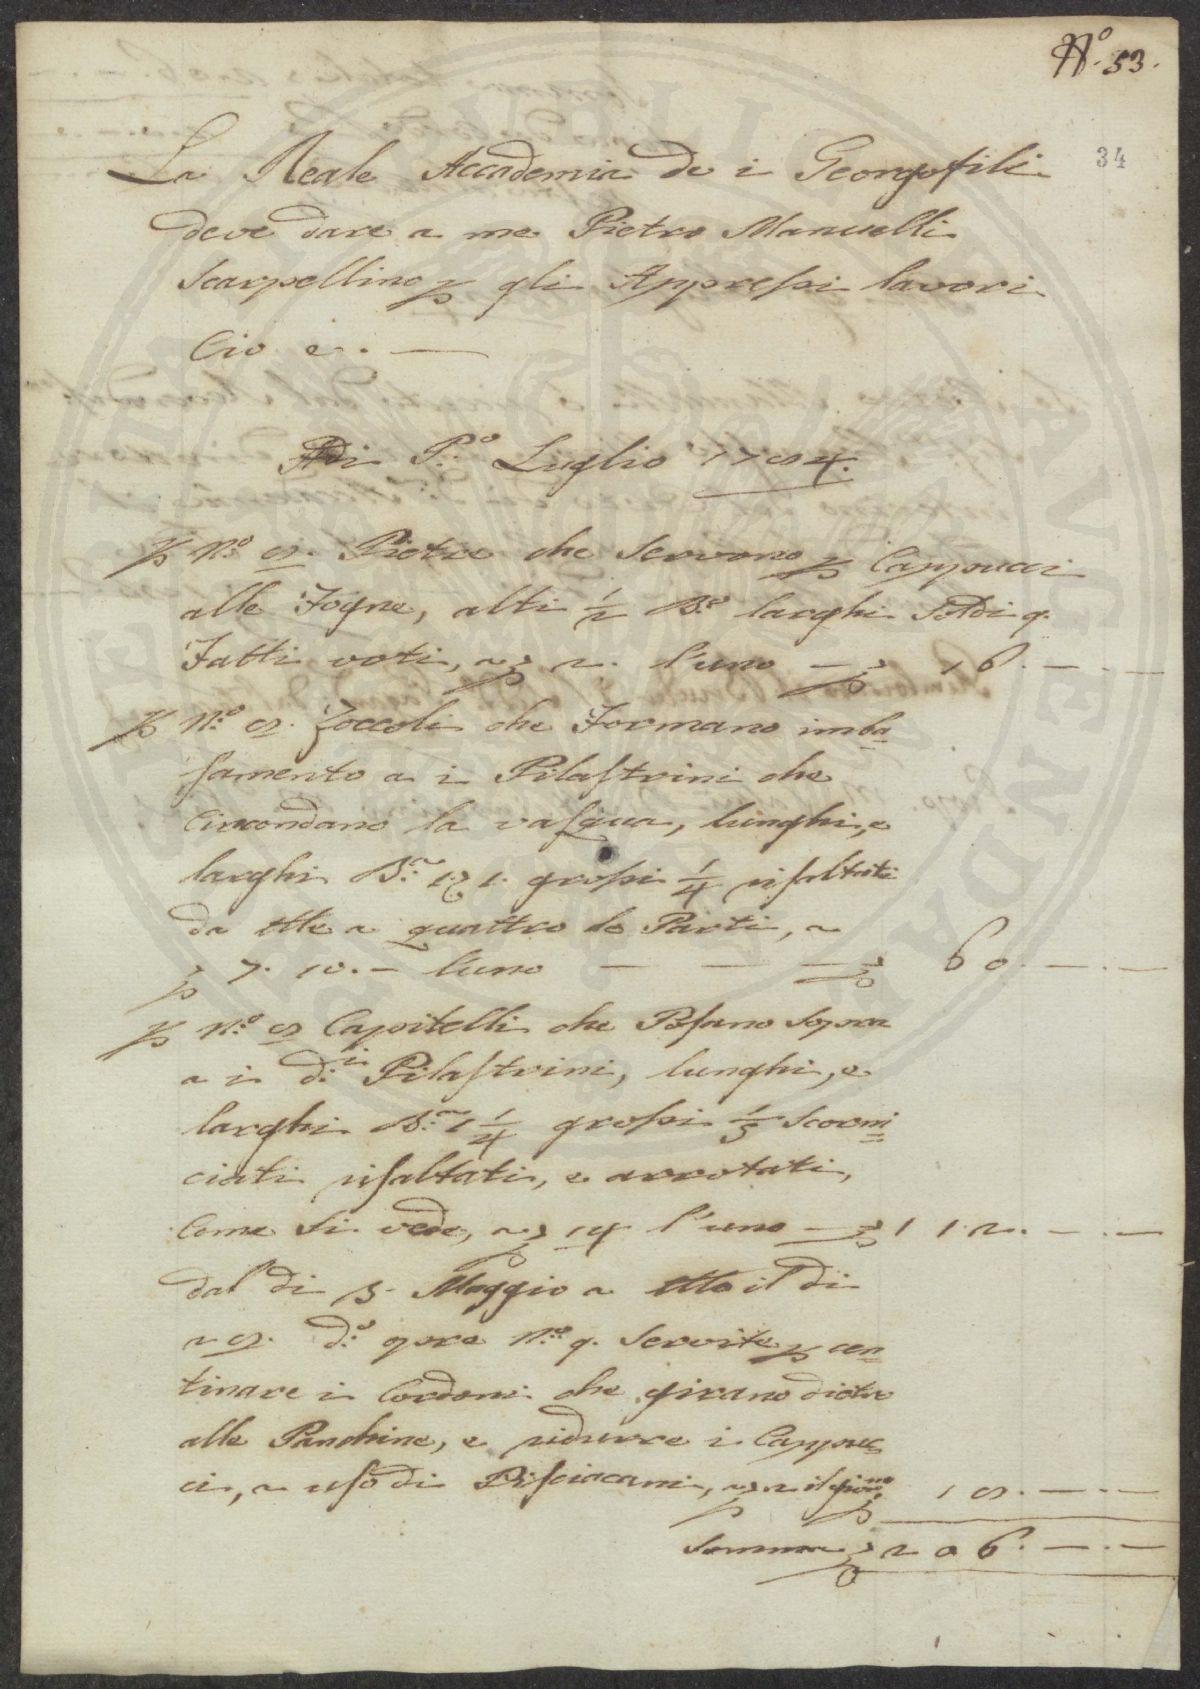 N.º 53.
34
La Reale Accademia de i Georgofili
deve dare a me Pietro Manuelli
Scarpellino p gli Appressi lavori
Cio e. —
Adi P.º Luglio 1784.
p N.º 8. Pietre che Servono p Cappucci
alle Fogne, alti ½ B.º larghi Soldi 9.
Fatti voti, a £ 2. l'uno — £ 16. — . —
p N.º 8. Zoccoli che Formano imba=
samento a i Pilastrini che
Circondano la vasqua, lunghi, e
larghi B.ª 1. e 1. grossi ¼ risaltati
da tt̃e a quattro le Parti, a
£ 7. 10. — l'uno — — — £ 60. — . —
p N.º 8 Capitelli che Posano Sopra
a i d.ⁱ Pilastrini, lunghi, e
larghi B.ª 1 ¼ grossi ⅓ Scorni=
ciati risaltati, e arrotati,
Come Si vede, a £ 14 l'uno — £ 112. — . —
dal di 3. Maggio a tt̃o il di
28. d.º opre N.º 9. Servite p cen=
tinare i Cordoni che girano dietro
alle Panchine, e ridurre i Cappuc=
ci, a uso di Pisciacani, a £ 2 il giorno £ 18. — . —
Somma £ 206. — . —